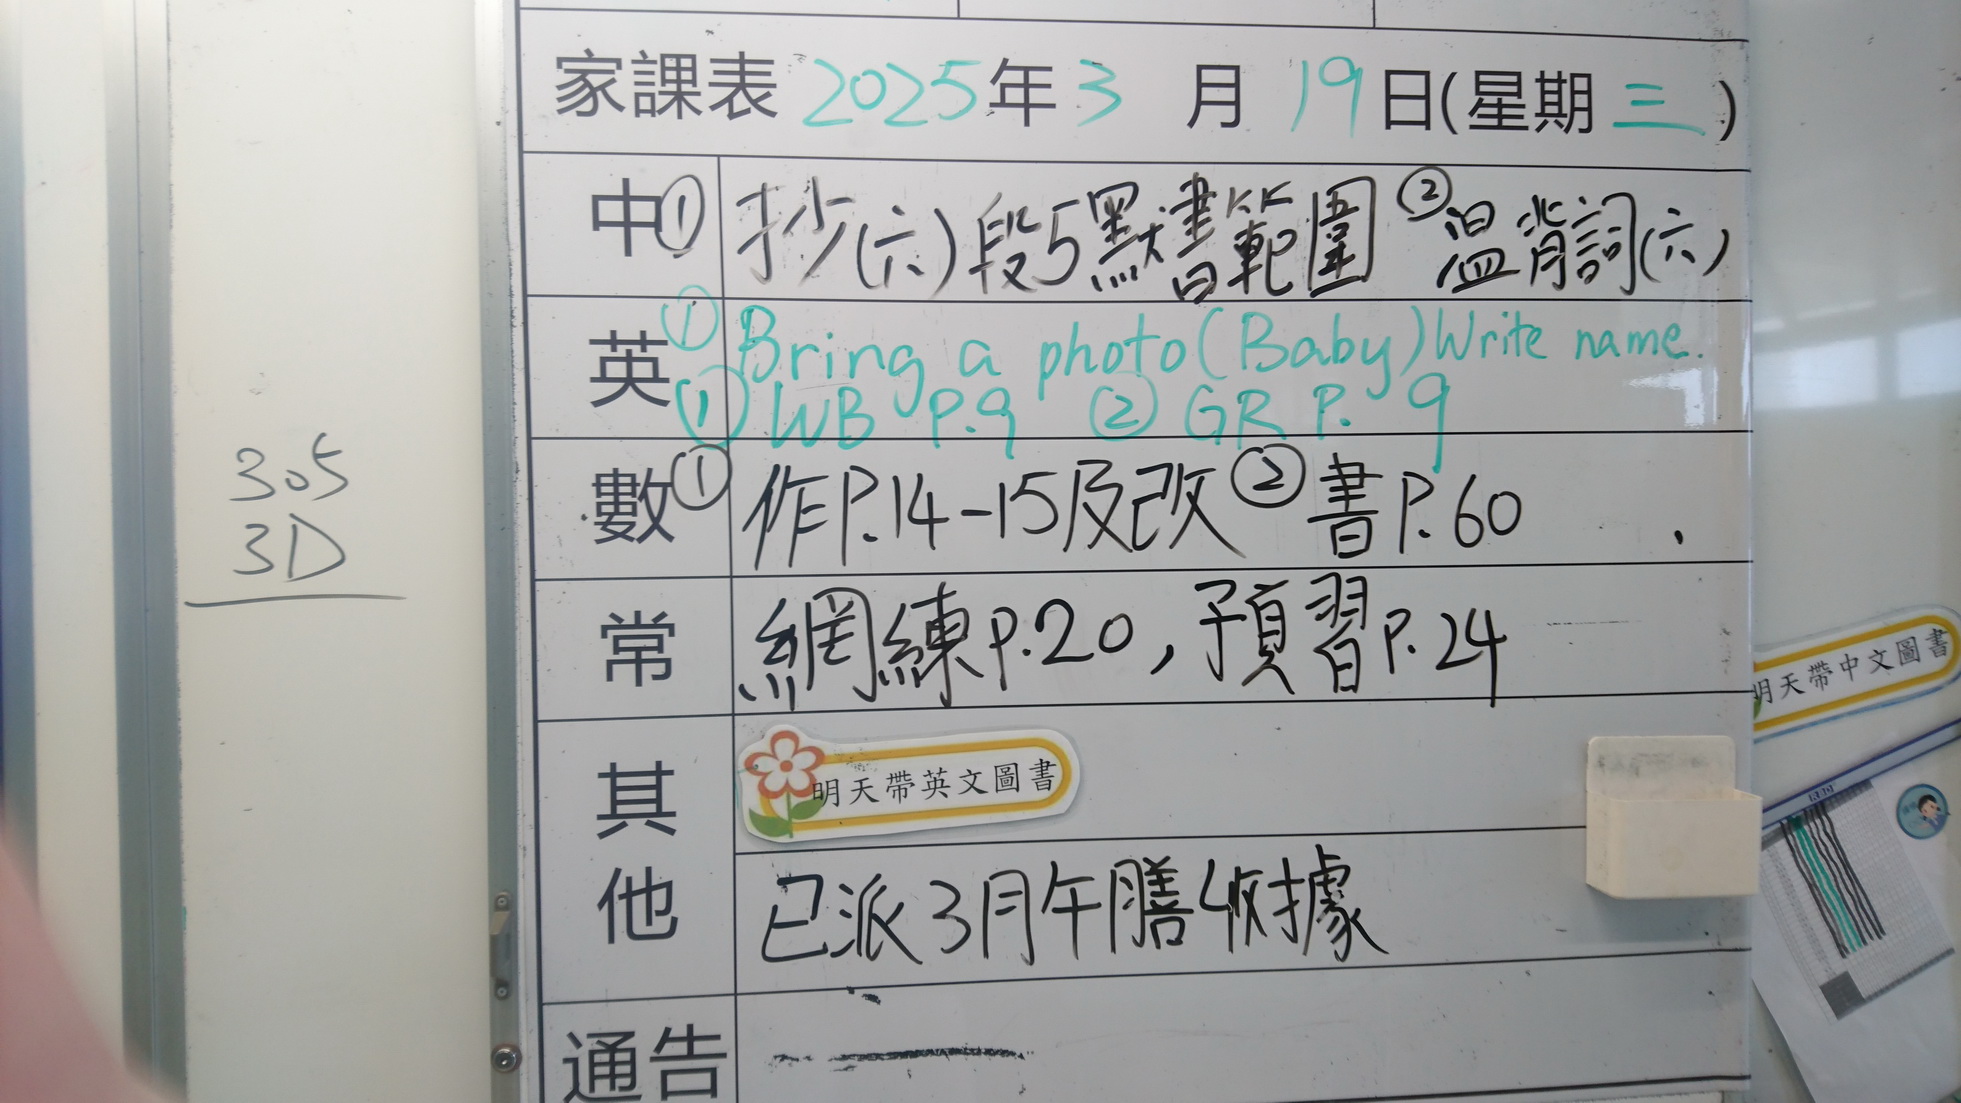 家課表 2025年3月19日(星期三)
中 ① 抄(六)段5默書範圍 ② 溫背詞(六)
英 ① Bring a photo (Baby) Write name.
① WB P.9 ② GR P. 9
數 ① 作P.14-15及改 ② 書P.60
常 網練P.20,預習P.24
其他 明天帶英文圖書
已派3月午膳收據
通告
305
3D
明天帶中文圖書